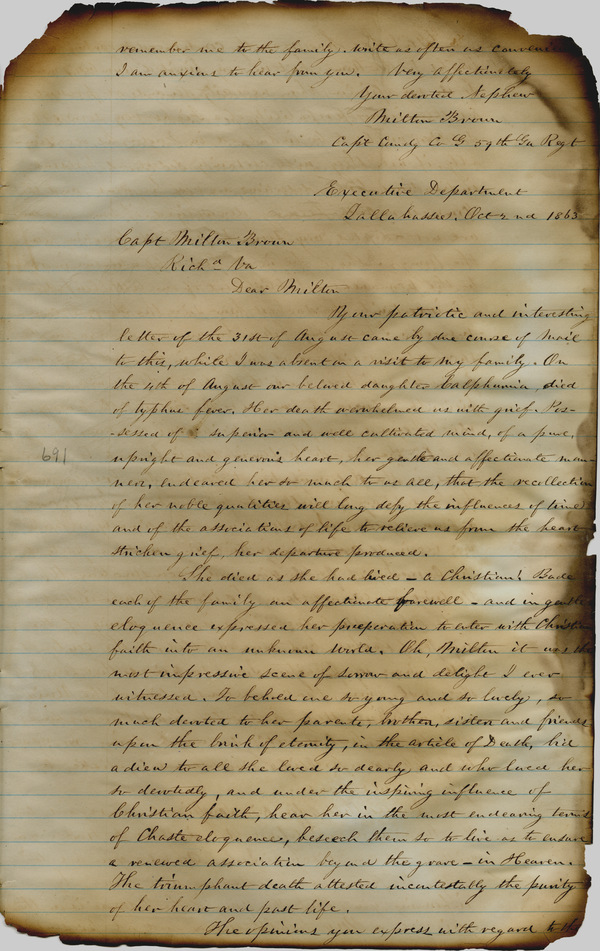 remember me to the family. write as often as
I am anxious to hear from you. Very affectinately
Your devoted Nephew
Milton Brown
Capt Comdg Co G 59th Ga Regt
Executive Department
Tallahassee, Oct 2nd 1863
Capt Milton Brown
Richd Va
Dear Milton
Your patriotic and interesting
letter of the 31st of August came by due course of mail
to this, while I was absent on a visit to my family. On
the 4th of August our beloved daughter Calphurnia, died
of typhus fever. Her death overwhelmed us with grief. Pos-
-sessed of a superior and well cultivated mind, of a pure,
691
upright and generous heart, her gentle and affectinate man-
ners, endeared her so much to us all, that the recollection
of her noble qualities will long defy the influences of time
and of the associations of life to relieve us from the heart
stricken grief, her departure produced.
She died as she had lived – a Christian! Bade
each of the family an affectinate farewell – and in gentle
eloquence expressed her preperation to enter with Christian
faith into an unknown world. Oh, Milton it was the
most impressive scene of sorrow and delight I ever
witnessed. To behold one so young and so lovely, so
much devoted to her parents, brothers, sisters and friends
upon the brink of eternity, in the article of Death, bid
adieu to all she loved so dearly and who loved her
so devotedly, and under the inspiring influence of
Christian faith, hear her in the most endearing terms
of Chaste eloquence, beseech them so to live as to ensure
a renewed association beyond the grave – in Heaven.
The triumphant death attested incontestably the purity
of her heart and past life.
The opinions you express with regard to the